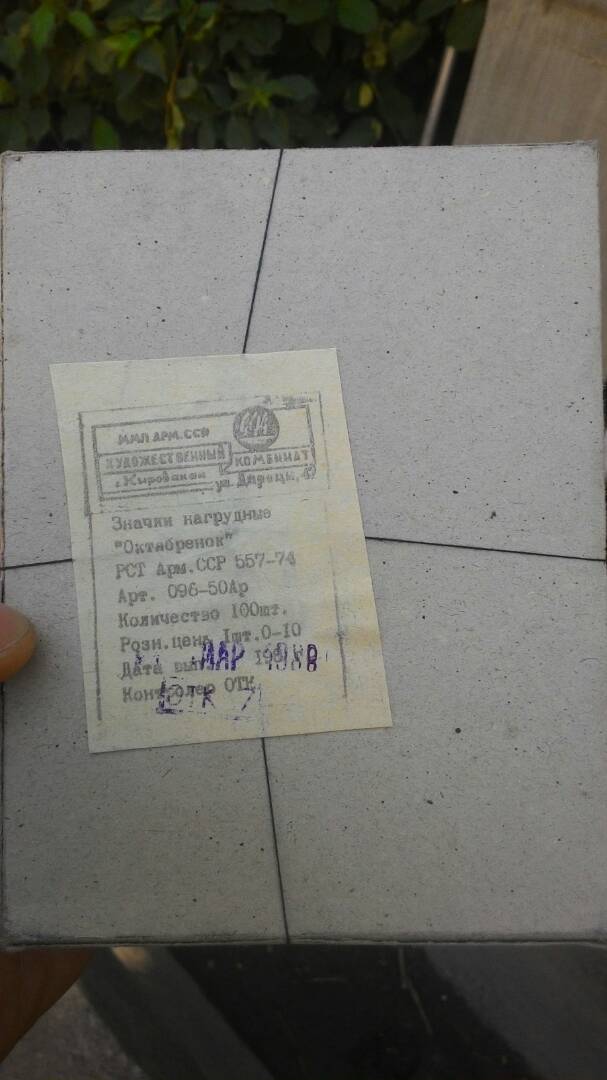 ММП АРМ.ССР
ХУДОЖЕСТВЕННЫЙ
КОМБИНАТ
г. Кировакан
ул.
Значки нагрудные
"Октябренок"
РСТ Арм.ССР 557-74
Арт. 096-50Ар
Количество 100шт.
Розн.цена 1шт.0-10
Дата МАР 1988
Контролер ОТК
ОТК 7